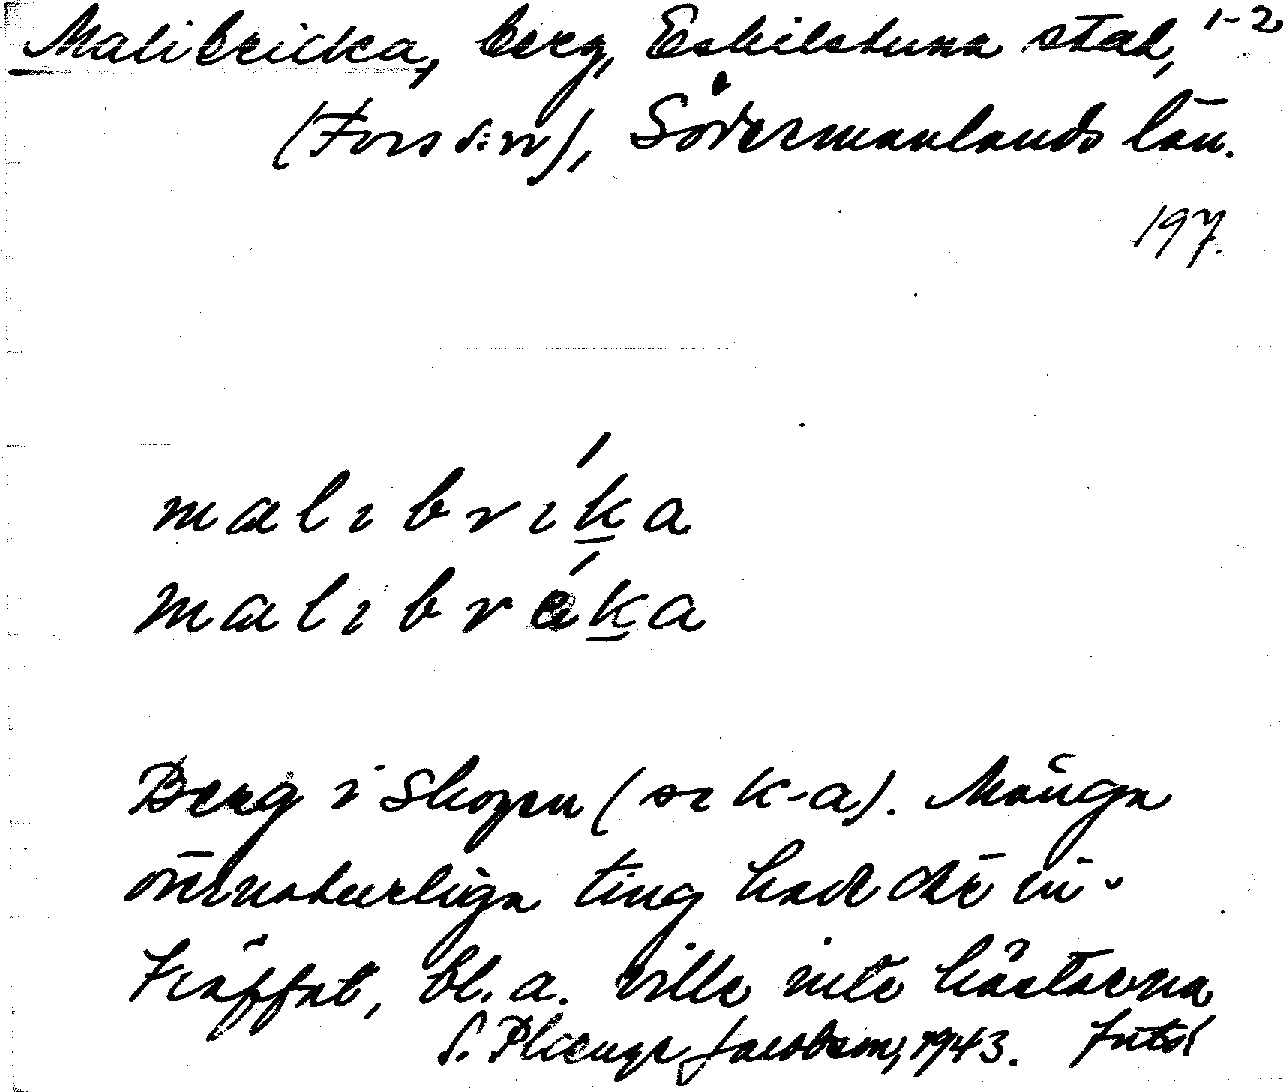 Malibricka, berg, Eskilstuna stad, 1-2
(Fors sn), Södermanlands län.
197.
malıbrıḱa
malıbréka
Berg i Skogen (se K-a). Många
övernaturliga ting hade där in-
träffat, bl. a. ville inte hästarna
S. Plaenge Jacobson, 1943.